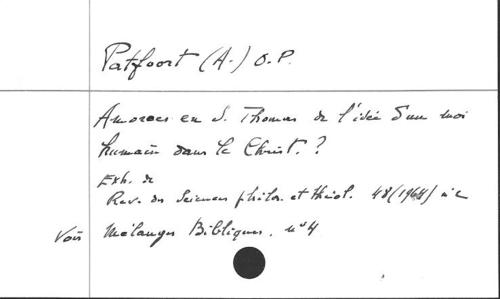 Patfoort (A.) O.P.
Amorces en S. Thomas de l'idée d'un moi
humain dans le Christ.?
Exh. de
Rev. des Sciences philos. et théol. 48 (1964) n 2
Voir Mélanges Bibliques, n° 4